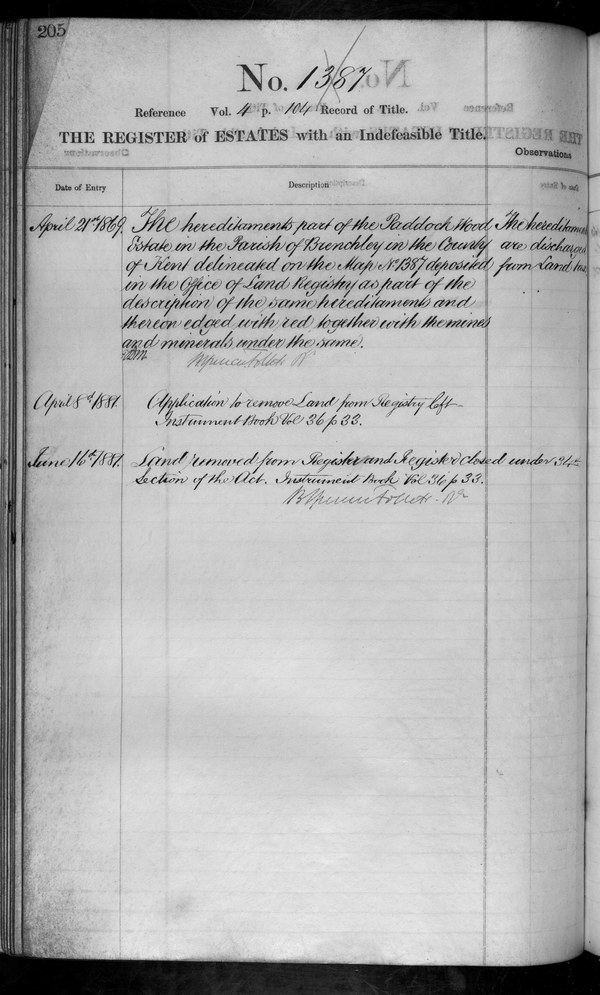 205
No. 1387
Reference Vol. 4 p. 104 Record of Title.
THE REGISTER of ESTATES with an Indefeasible Title.
Observations
Date of Entry
Description
April 21st 1869. The hereditaments part of the Paddock Wood
Estate in the Parish of Brenchley in the County
of Kent delineated on the Map No 1387 deposited
in the Office of Land Registry as part of the
description of the same hereditaments and
thereon edged with red together with the mines
and minerals under the same.
The hereditaments
are discharged
from Land tax
April 8th 1881. Application to remove Land from Registry left
Instrument Book Vol 36 p 33.
June 16th 1881. Land removed from Register and Register closed under 34th
Section of the Act. Instrument Book Vol 36 p 33.